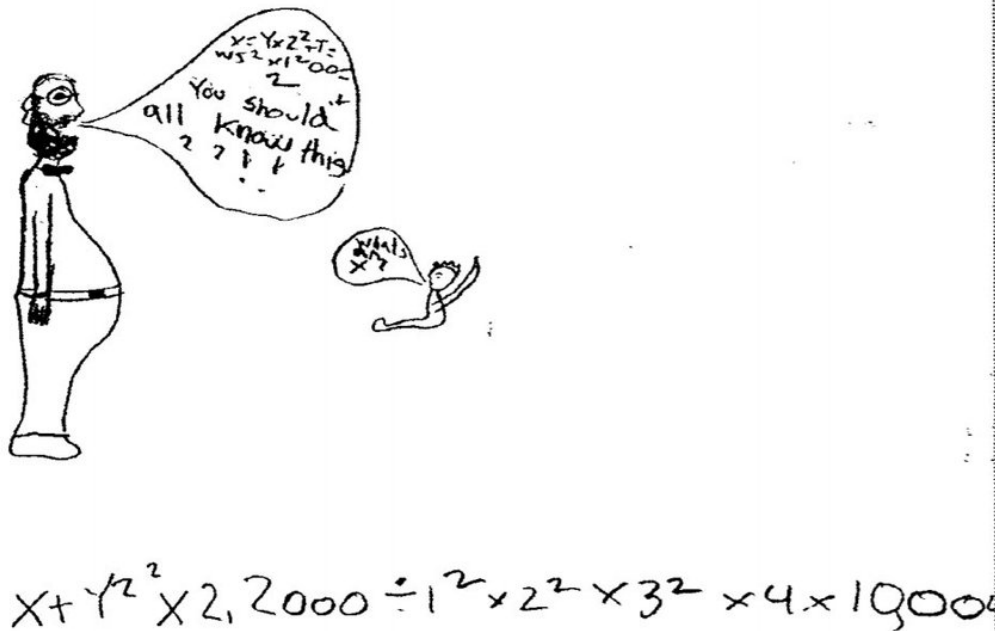 X=Yx2²+T=
W5²x1²00=
2
You should
all know this
? ? ! !
whats
x?
X+Y2²x2,2000÷1²x2²x3²x4x10,000